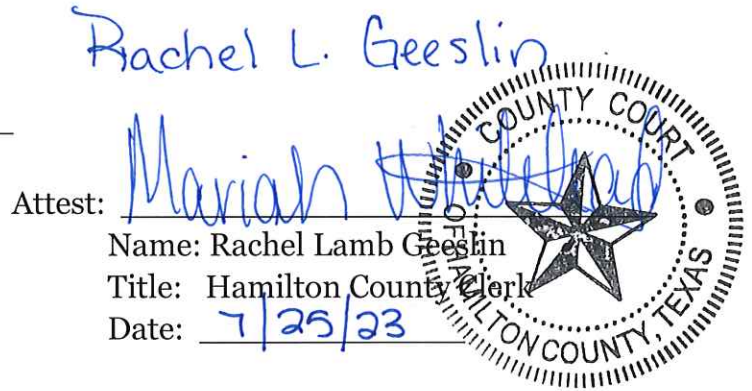 Rachel L. Geeslin
Attest: Mariah
Name: Rachel Lamb Geeslin
Title: Hamilton County Clerk
Date: 7/25/23
COUNTY COURT
OF HAMILTON COUNTY, TEXAS